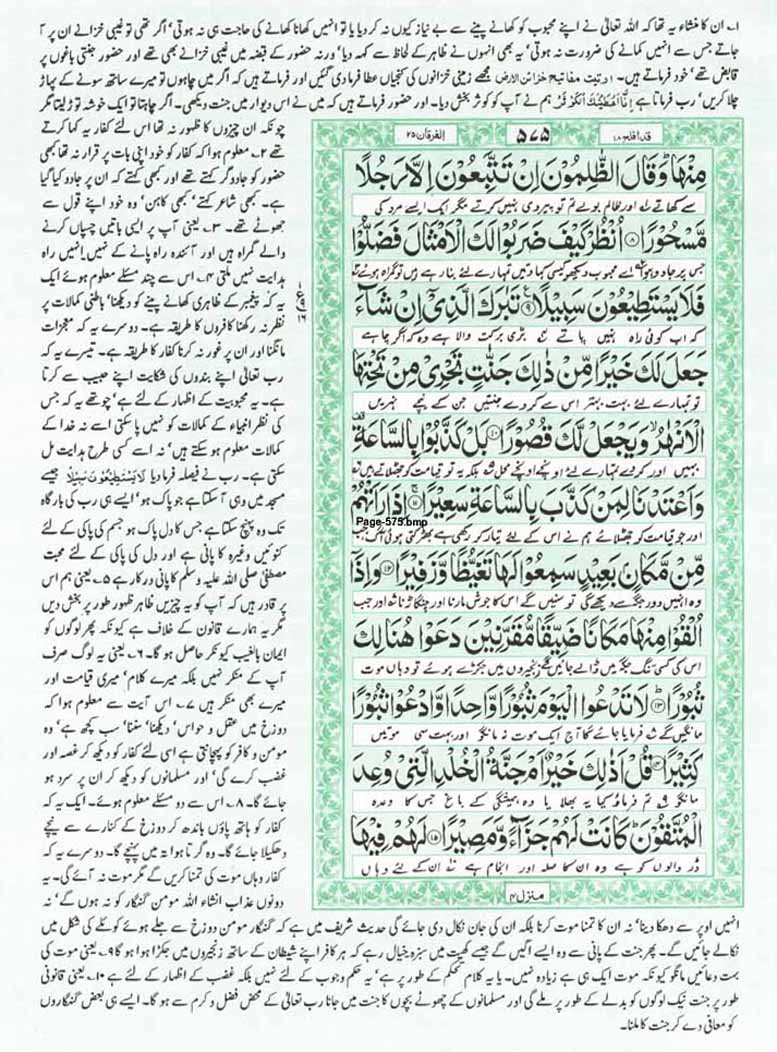 ۱۔ ان کا منشاء یہ تھا کہ اللہ تعالٰی نے اپنے محبوب کو کھانے پینے سے بے نیاز کیوں نہ کر دیا یا تو انہیں کھانا کھانے کی حاجت ہی نہ ہوتی' اگر تھی تو غیبی خزانے ان پر آ
جاتے جس سے انہیں کمانے کی ضرورت نہ ہوتی' یہ بھی انہوں نے ظاہر کے لحاظ سے کہہ دیا' ورنہ حضور کے قبضہ میں غیبی خزانے بھی تھے اور حضور جنتی باغوں پر
قابض تھے' خود فرماتے ہیں۔ اوتیت مفاتیح خزائن الارض مجھے زمینی خزانوں کی کنجیاں عطا فرما دی گئیں اور فرماتے ہیں کہ اگر میں چاہوں تو میرے ساتھ سونے کے پہاڑ
چلا کریں' رب فرماتا ہے اِنَّا اَعْطَیْنٰكَ الْكَوْثَرَ ہم نے آپ کو کوثر بخش دیا۔ اور حضور فرماتے ہیں کہ میں نے اس دیوار میں جنت دیکھی۔ اگر چاہتا تو ایک خوشہ توڑ لیتا مگر
قد افلح ۱۸
۵۷۵
الفرقان ۲۵
مِنْهَا ؕ وَقَالَ الظّٰلِمُوْنَ اِنْ تَتَّبِعُوْنَ اِلَّا رَجُلًا
سے کھاتے اور ظالم بولے تم تو پیروی نہیں کرتے مگر ایک ایسے مرد کی
مَّسْحُوْرًا ﴿۸﴾ اُنْظُرْ كَیْفَ ضَرَبُوْا لَكَ الْاَمْثَالَ فَضَلُّوْا
جس پر جادو ہوا اے محبوب دیکھو کیسی کہاوتیں تمہارے لئے بنا رہے ہیں تو گمراہ ہوئے
فَلَا یَسْتَطِیْعُوْنَ سَبِیْلًا ﴿۹﴾ تَبٰرَكَ الَّذِیْۤ اِنْ شَآءَ
کہ اب کوئی راہ نہیں پاتے بڑی برکت والا ہے وہ کہ اگر چاہے
جَعَلَ لَكَ خَیْرًا مِّنْ ذٰلِكَ جَنّٰتٍ تَجْرِیْ مِنْ تَحْتِهَا
تو تمہارے لئے بہت بہتر اس سے کردے جنتیں جن کے نیچے نہریں
الْاَنْهٰرُ ۙ وَیَجْعَلْ لَّكَ قُصُوْرًا ﴿۱۰﴾ بَلْ كَذَّبُوْا بِالسَّاعَةِ
بہیں اور کردے تمہارے لئے اونچے اونچے محل بلکہ یہ تو قیامت کو جھٹلاتے ہیں
وَاَعْتَدْنَا لِمَنْ كَذَّبَ بِالسَّاعَةِ سَعِیْرًا ﴿۱۱﴾ اِذَا رَاَتْهُمْ
Page-575.bmp
اور جو قیامت کو جھٹلائے ہم نے اس کے لئے تیار کر رکھی ہے بھڑکتی ہوئی آگ جب
مِّنْ مَّكَانٍۭ بَعِیْدٍ سَمِعُوْا لَهَا تَغَیُّظًا وَّزَفِیْرًا ﴿۱۲﴾ وَاِذَاۤ
وہ انہیں دور جگہ سے دیکھے گی تو سنیں گے اس کا جوش مارنا اور چنگھاڑنا اور جب
اُلْقُوْا مِنْهَا مَكَانًا ضَیِّقًا مُّقَرَّنِیْنَ دَعَوْا هُنَالِكَ
اس کی کسی تنگ جگہ میں ڈالے جائیں گے زنجیروں میں جکڑے ہوئے تو وہاں موت
ثُبُوْرًا ﴿۱۳﴾ لَا تَدْعُوا الْیَوْمَ ثُبُوْرًا وَّاحِدًا وَّادْعُوْا ثُبُوْرًا
مانگیں گے فرمایا جائے گا آج ایک موت نہ مانگو اور بہت سی موتیں
كَثِیْرًا ﴿۱۴﴾ قُلْ اَذٰلِكَ خَیْرٌ اَمْ جَنَّةُ الْخُلْدِ الَّتِیْ وُعِدَ
مانگو تم فرماؤ کیا یہ بھلا یا وہ ہمیشگی کے باغ جس کا وعدہ
الْمُتَّقُوْنَ ؕ كَانَتْ لَهُمْ جَزَآءً وَّمَصِیْرًا ﴿۱۵﴾ لَهُمْ فِیْهَا
ڈر والوں کو ہے وہ ان کا صلہ اور انجام ہے ان کے لئے وہاں
منزل ۴
چونکہ ان چیزوں کا ظہور نہ تھا اس لئے کفار یہ کہا کرتے
تھے ۲۔ معلوم ہوا کہ کفار کو خود اپنی بات پر قرار نہ تھا کبھی
حضور کو جادوگر کہتے تھے اور کبھی کہتے کہ ان پر جادو کیا گیا
ہے۔ کبھی شاعر کہتے' کبھی کاہن' وہ خود اپنے قول سے
جھوٹے تھے۔ ۳۔ یعنی آپ پر ایسی باتیں چسپاں کرنے
والے گمراہ ہیں اور آئندہ راہ پانے کے نہیں' انہیں راہ
ہدایت نہیں ملتی ۴۔ اس سے چند مسئلے معلوم ہوئے ایک
یہ کہ پیغمبر کے ظاہری کھانے پینے کو دیکھنا' باطنی کمالات پر
نظر نہ رکھنا کافروں کا طریقہ ہے۔ دوسرے یہ کہ معجزات
مانگنا اور ان پر غور نہ کرنا کفار کا طریقہ ہے۔ تیسرے یہ کہ
رب تعالٰی اپنے بندوں کی شکایت اپنے حبیب سے کرتا
ہے۔ یہ محبوبیت کے اظہار کے لئے ہے' چوتھے یہ کہ جس
کی نظر انبیاء کے کمالات کو نہیں پا سکتی اسے نہ خدا کے
کمالات معلوم ہو سکتے ہیں' نہ اسے کسی طرح ہدایت مل
سکتی ہے۔ رب نے فیصلہ فرما دیا لَا یَسْتَطِیْعُوْنَ سَبِیْلًا جیسے
مسجد میں وہی آ سکتا ہے جو پاک ہو' ایسے ہی رب کی بارگاہ
تک وہ پہنچ سکتا ہے جس کا دل پاک ہو جسم کی پاکی کے لئے
کنوئیں وغیرہ کا پانی ہے اور دل کی پاکی کے لئے محبت
مصطفٰی صلی اللہ علیہ وسلم کا پانی درکار ہے ۵۔ یعنی ہم اس
پر قادر ہیں کہ آپ کو یہ چیزیں ظاہر ظہور طور پر بخش دیں
مگر یہ ہمارے قانون کے خلاف ہے کیونکہ پھر لوگوں کو
ایمان بالغیب کیونکر حاصل ہو گا۔ ۶۔ یعنی یہ لوگ صرف
آپ کے منکر نہیں بلکہ میرے کلام' میری قیامت اور
میرے بھی منکر ہیں ۷۔ اس آیت سے معلوم ہوا کہ
دوزخ میں عقل و حواس' دیکھنا' سننا' سب کچھ ہے' وہ
مومن و کافر کو پہچانتی ہے اسی لئے کفار کو دیکھ کر غصہ اور
غضب کرے گی' اور مسلمانوں کو دیکھ کر ان پر سرد ہو
جائے گا۔ ۸۔ اس سے دو مسئلے معلوم ہوئے۔ ایک یہ کہ
کفار کو ہاتھ پاؤں باندھ کر دوزخ کے کنارے سے نیچے
دھکیلا جائے گا۔ وہ گرتا ہوا تہ میں پہنچے گا۔ دوسرے یہ کہ
کفار وہاں موت کی تمنا کریں گے مگر موت نہ آئے گی۔ یہ
دونوں عذاب انشاء اللہ مومن گنہگار کو نہ ہوں گے' نہ
انہیں اوپر سے دھکا دینا' نہ ان کا تمنا موت کرنا بلکہ ان کی جان نکال دی جائے گی حدیث شریف میں ہے کہ گنہگار مومن دوزخ سے جلے ہوئے کوئلے کی شکل میں
نکالے جائیں گے۔ پھر جنت کے پانی سے وہ ایسے اگیں گے جیسے کھیت میں سبزہ خیال رہے کہ ہر کافر اپنے شیطان کے ساتھ زنجیروں میں جکڑا ہوا ہو گا ۹۔ یعنی موت کی
بہت دعائیں مانگو کیونکہ موت ایک ہی ہے زیادہ نہیں۔ یا یہ کلام تحکم کے طور پر ہے' یہ حکم وجوب کے لئے نہیں بلکہ غضب کے اظہار کے لئے ہے ۱۰۔ یعنی قانونی
طور پر جنت نیک لوگوں کو بدلے کے طور پر ملے گی اور مسلمانوں کے چھوٹے بچوں کا جنت میں جانا رب تعالٰی کے محض فضل و کرم سے ہو گا۔ ایسے ہی بعض گنہگاروں
کو معافی دے کر جنت کا ملنا۔